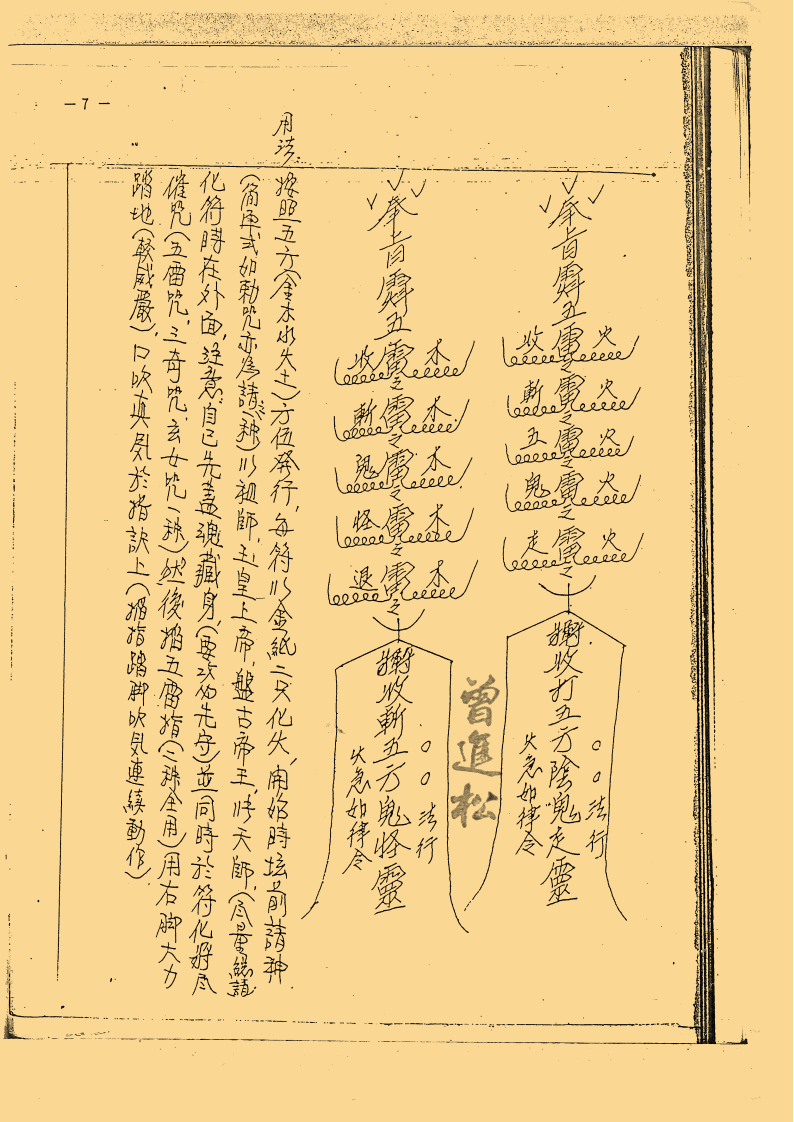 －7－
奉旨霹五雷之雷之雷之雷之雷之
收斬五鬼走
火火火火火
收打五方陰鬼走靈
○○法行
火急如律令
曾進松
奉旨霹五雷之雷之雷之雷之雷之
收斬鬼怪退
木木木木木
收斬五方鬼怪靈
○○法行
火急如律令
用法
按照五方(金木水火土)方位發行，每符以金紙二只化火，開始時坛前請神
(簡單式如勅咒亦為請神)以祖師，玉皇上帝，盤古帝王，張天師，(尽量總請)
化符時在外面，注意自己先蓋魂藏身，(要攻的先守)並同時於符化將尽
催咒(五雷咒，三奇咒，玄女咒一种)然後掐五雷指(二种全用)用右脚大力
踏地(較威嚴)，口吹真気於指訣上(掐指踏脚吹気連續動作)．